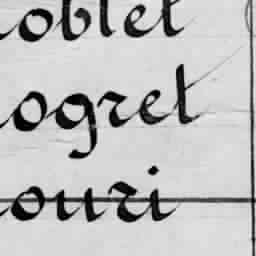 oblet
ogret
ouri